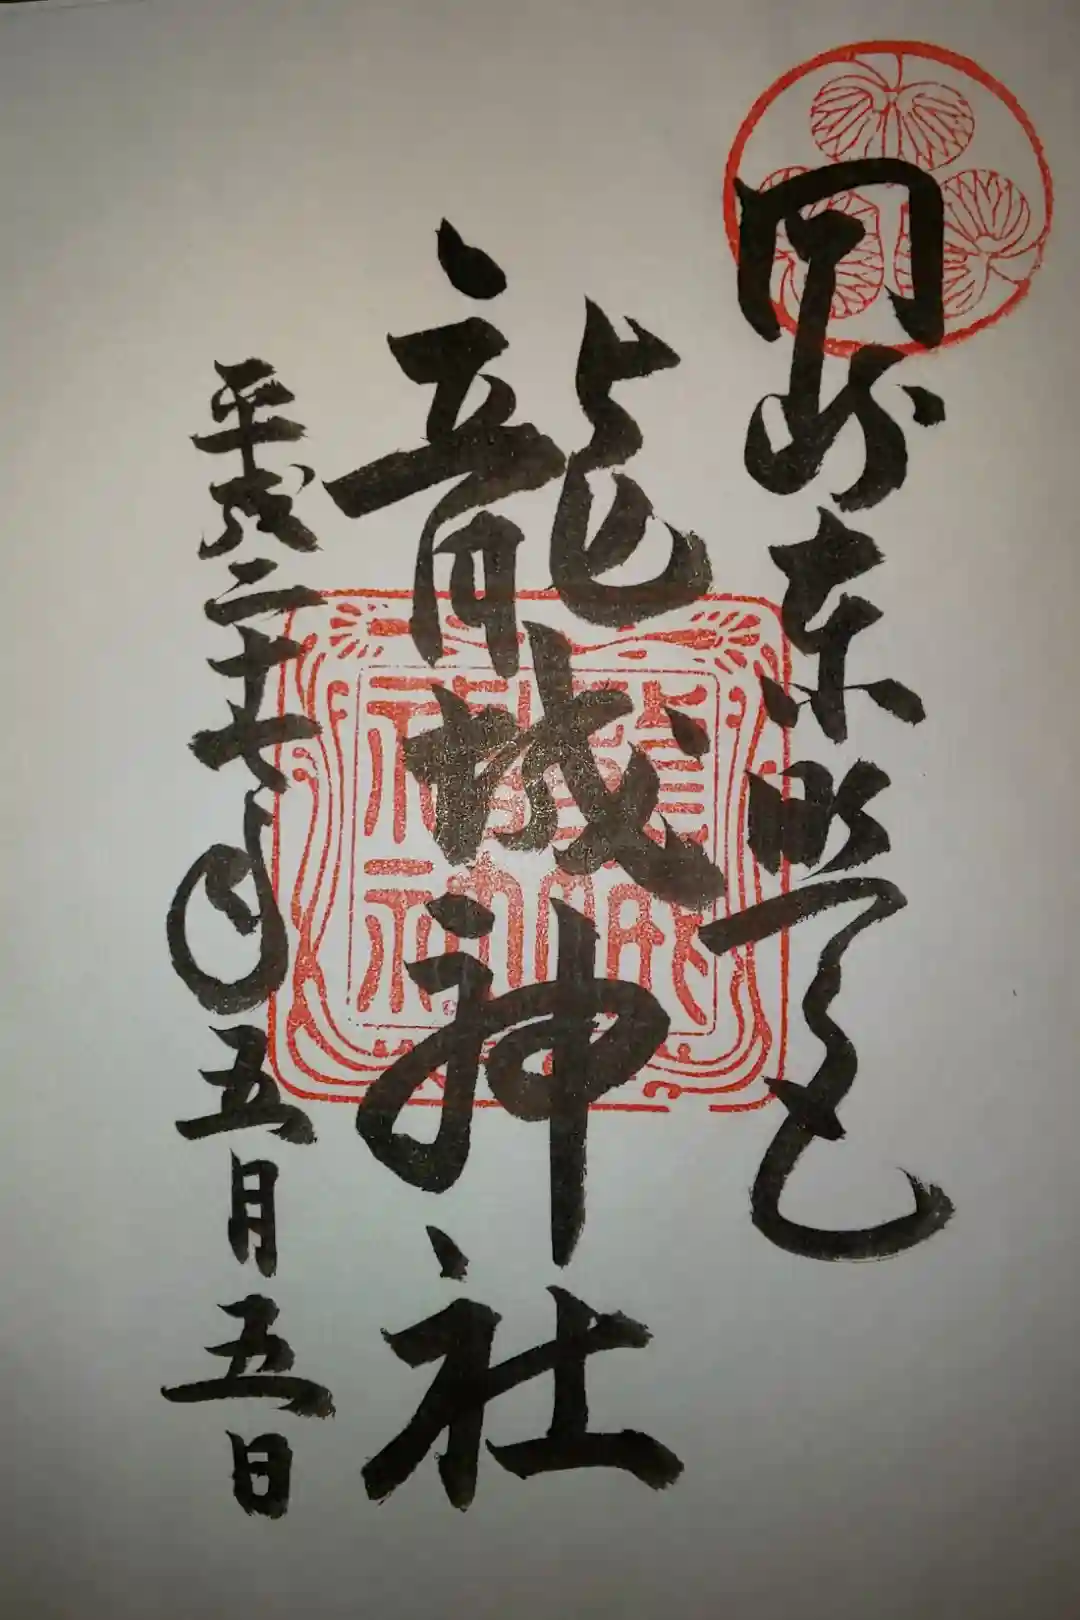 東照宮
龍城神社
平成二十七年五月五日